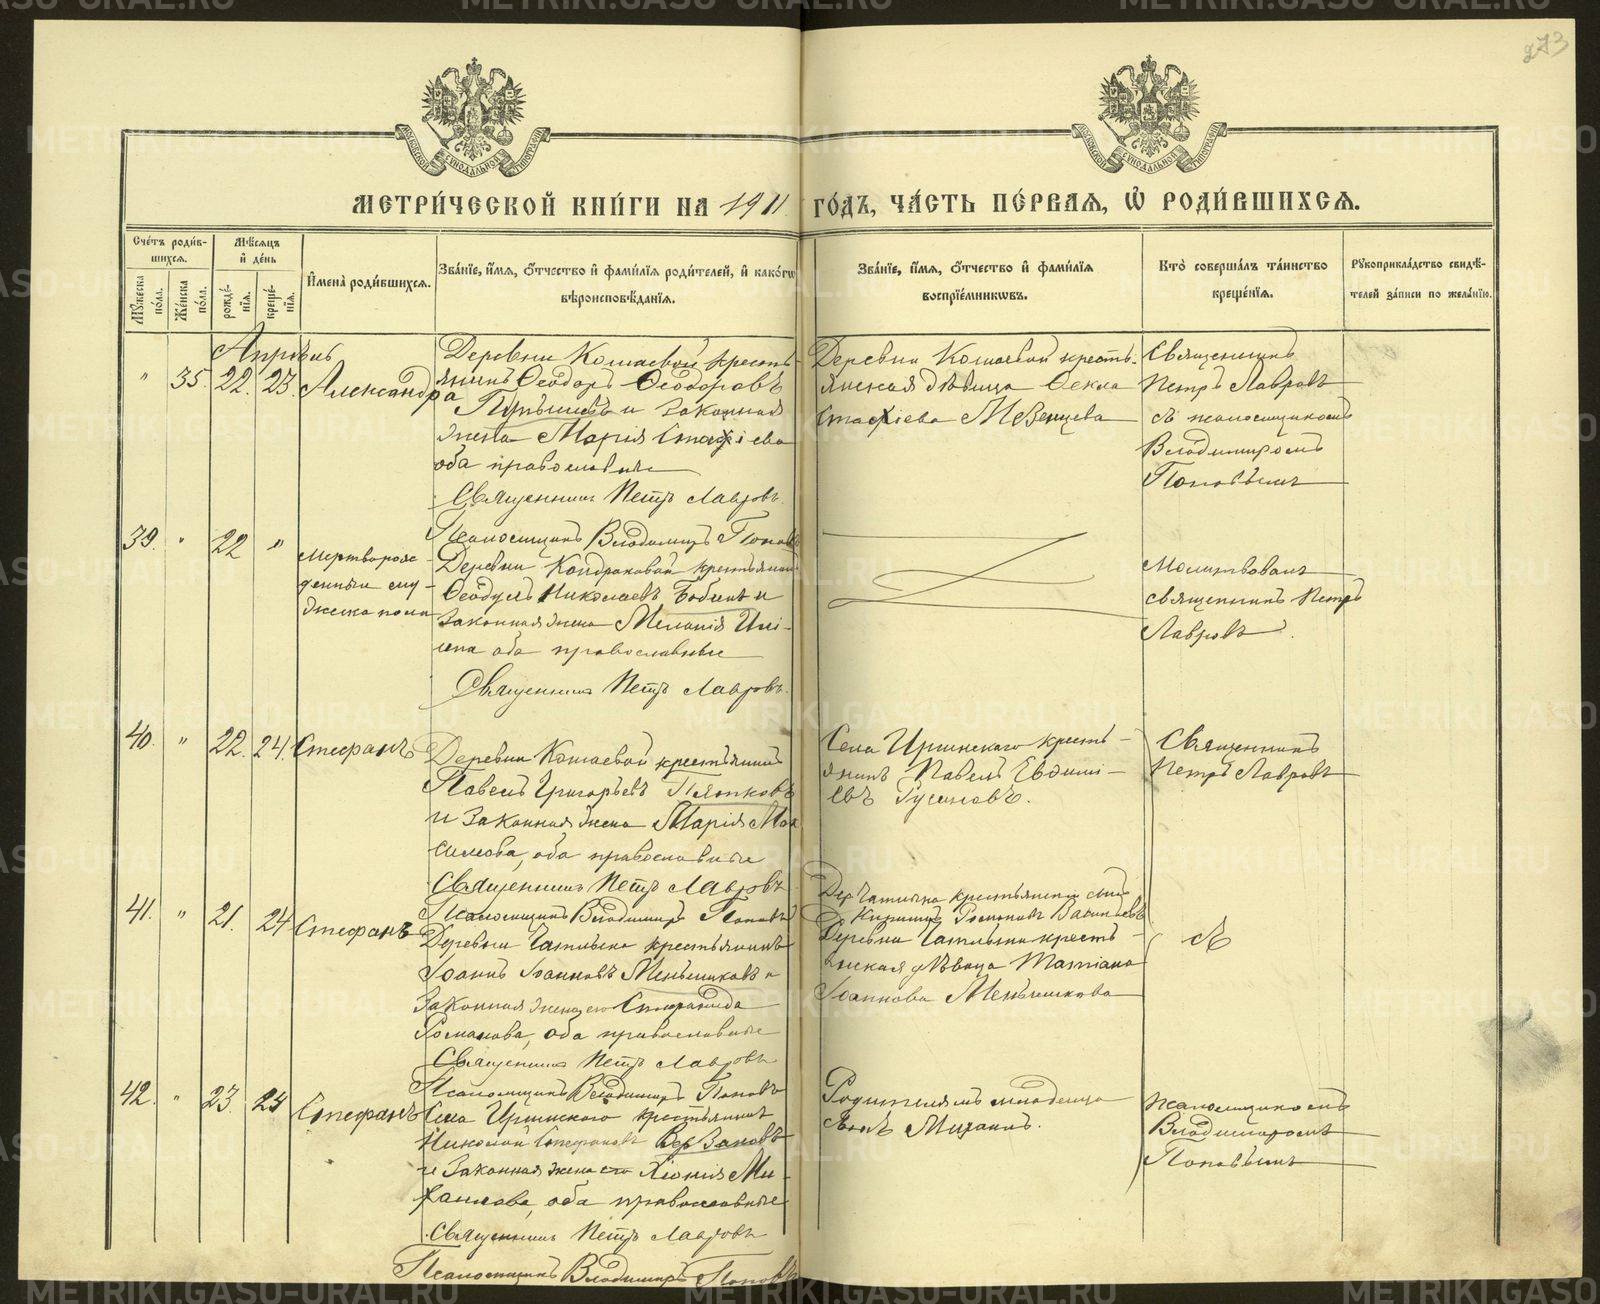 273
МЕТРИ́ЧЕСКОЙ КНИ́ГИ НА 1911 ГО́ДЪ, ЧА́СТЬ ПЕ́РВАЯ, Ѡ РОДИ́ВШИХСЯ.
Сче́тъ роди́в-
шихся.
Му́жеска по́ла.
Же́нска по́ла.
Мѣ́сяцъ и де́нь
рожде́нїя.
креще́нїя.
И҆мена̀ роди́вшихся.
Зва́нїе, и҆́мя, ѻ҆́тчество и҆ фами́лїя роди́телей, и҆ како́гѡ
вѣроисповѣ́данїя.
Зва́нїе, и҆́мя, ѻ҆́тчество и҆ фами́лїя
воспрїе́мникѡвъ.
Кто̀ соверша́лъ та́инство
креще́нїя.
Рꙋкоприкла́дство свидѣ́-
телей за́писи по жела́нїю.
Апрѣль
" 35. 22. 23. Александра
Деревни Кошаевой кресть-
янинъ Ѳеодоръ Ѳеодоровъ
и законная
жена Марія Стахіева
оба православные
Священникъ Петръ Лавровъ
Псаломщикъ Владимиръ Поповъ
Деревни Кошаевой кресть-
янская дѣвица Ѳекла
Стахіева Мезенцева
Священникъ
Петръ Лавровъ
съ псаломщикомъ
Владимиромъ
Поповымъ
39. " 22 "
Мертворож-
денный му-
жеска пола
Деревни Кондраковой крестьянинъ
Ѳеодулъ Николаевъ Бабинъ и
законная жена Меланія Илі-
ина оба православные
Священникъ Петръ Лавровъ.
Молитвовалъ
священникъ Петръ
Лавровъ.
40. " 22. 24. Стефанъ
Деревни Кошаевой крестьянинъ
Павелъ Григорьевъ Пятковъ
и законная жена Марія Мак
симова, оба православные
Священникъ Петръ Лавровъ
Псаломщикъ Владимиръ Поповъ
Села Иргинскаго кресть-
янинъ Павелъ Евдоки-
евъ Русиновъ.
Священникъ
Петръ Лавровъ
41. " 21. 24 Стефанъ
Деревни Чатлыка крестьянинъ
Іоаннъ Іоанновъ Меньшиковъ и
законная жена его Стефанида
Романова, оба православные
Священникъ Петръ Лавровъ
Псаломщикъ Владимиръ Поповъ
Дер. Чатлыка крестьянскій сынъ
Романовъ
Деревни Чатлыка кресть-
янская дѣвица Татіана
Іоаннова Меньшикова
съ
42. " 23. 24 Стефанъ
Села Иргинскаго крестьянинъ
Николай Стефановъ
и законная жена его Хіонія Ми-
хаилова, оба православные
Священникъ Петръ Лавровъ
Псаломщикъ Владимиръ Поповъ
Родителямъ младенца
Михаилъ.
псаломщикомъ
Владимиромъ
Поповымъ
METRIKI.GASO-URAL.RU